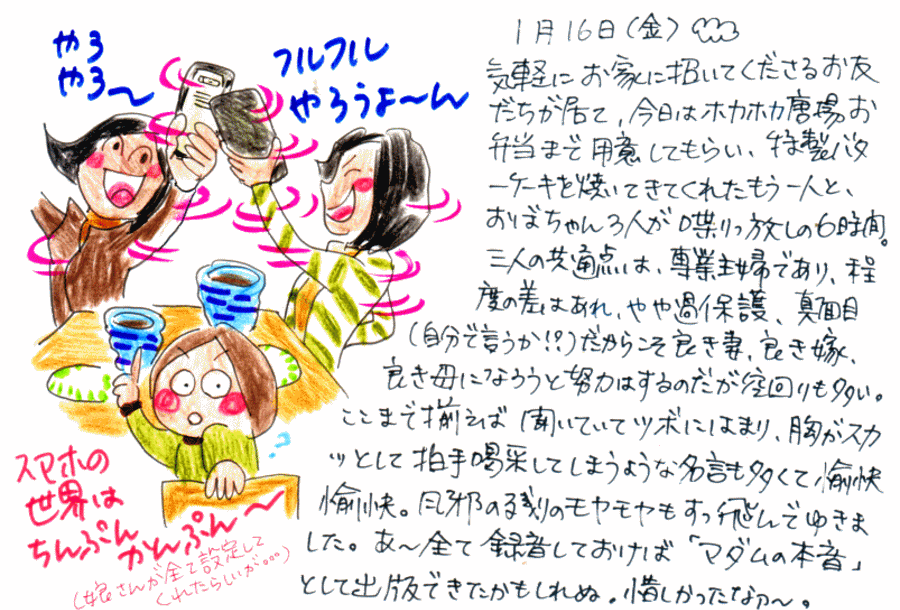 やろ
やろ〜
フルフル
やろうよ〜ん
スマホの
世界は
ちんぷんかんぷん〜
(嫁さんが全て設定して
くれたらしいが。。。)
1月16日(金)
気軽にお家に招いてくださるお友
だちが居て、今日はホカホカ唐揚お
弁当まで用意してもらい、特製バタ
ーケーキを焼いてきてくれたもう一人と、
おばちゃん3人が喋りっ放しの6時間。
三人の共通点は、専業主婦であり、程
度の差はあれ、やや過保護、真面目
(自分で言うか!?)だからこそ良き妻、良き嫁、
良き母になろうと努力はするのだが空回りも多い。
ここまで揃えば聞いていてツボにはまり、胸がスカ
ッとして拍手喝采してしまうような名言も多くて愉快
愉快。風邪の残りのモヤモヤもすっ飛んでゆきま
した。あ〜全て録音しておけば「マダムの本音」
として出版できたかもしれぬ。惜しかったなァ〜。